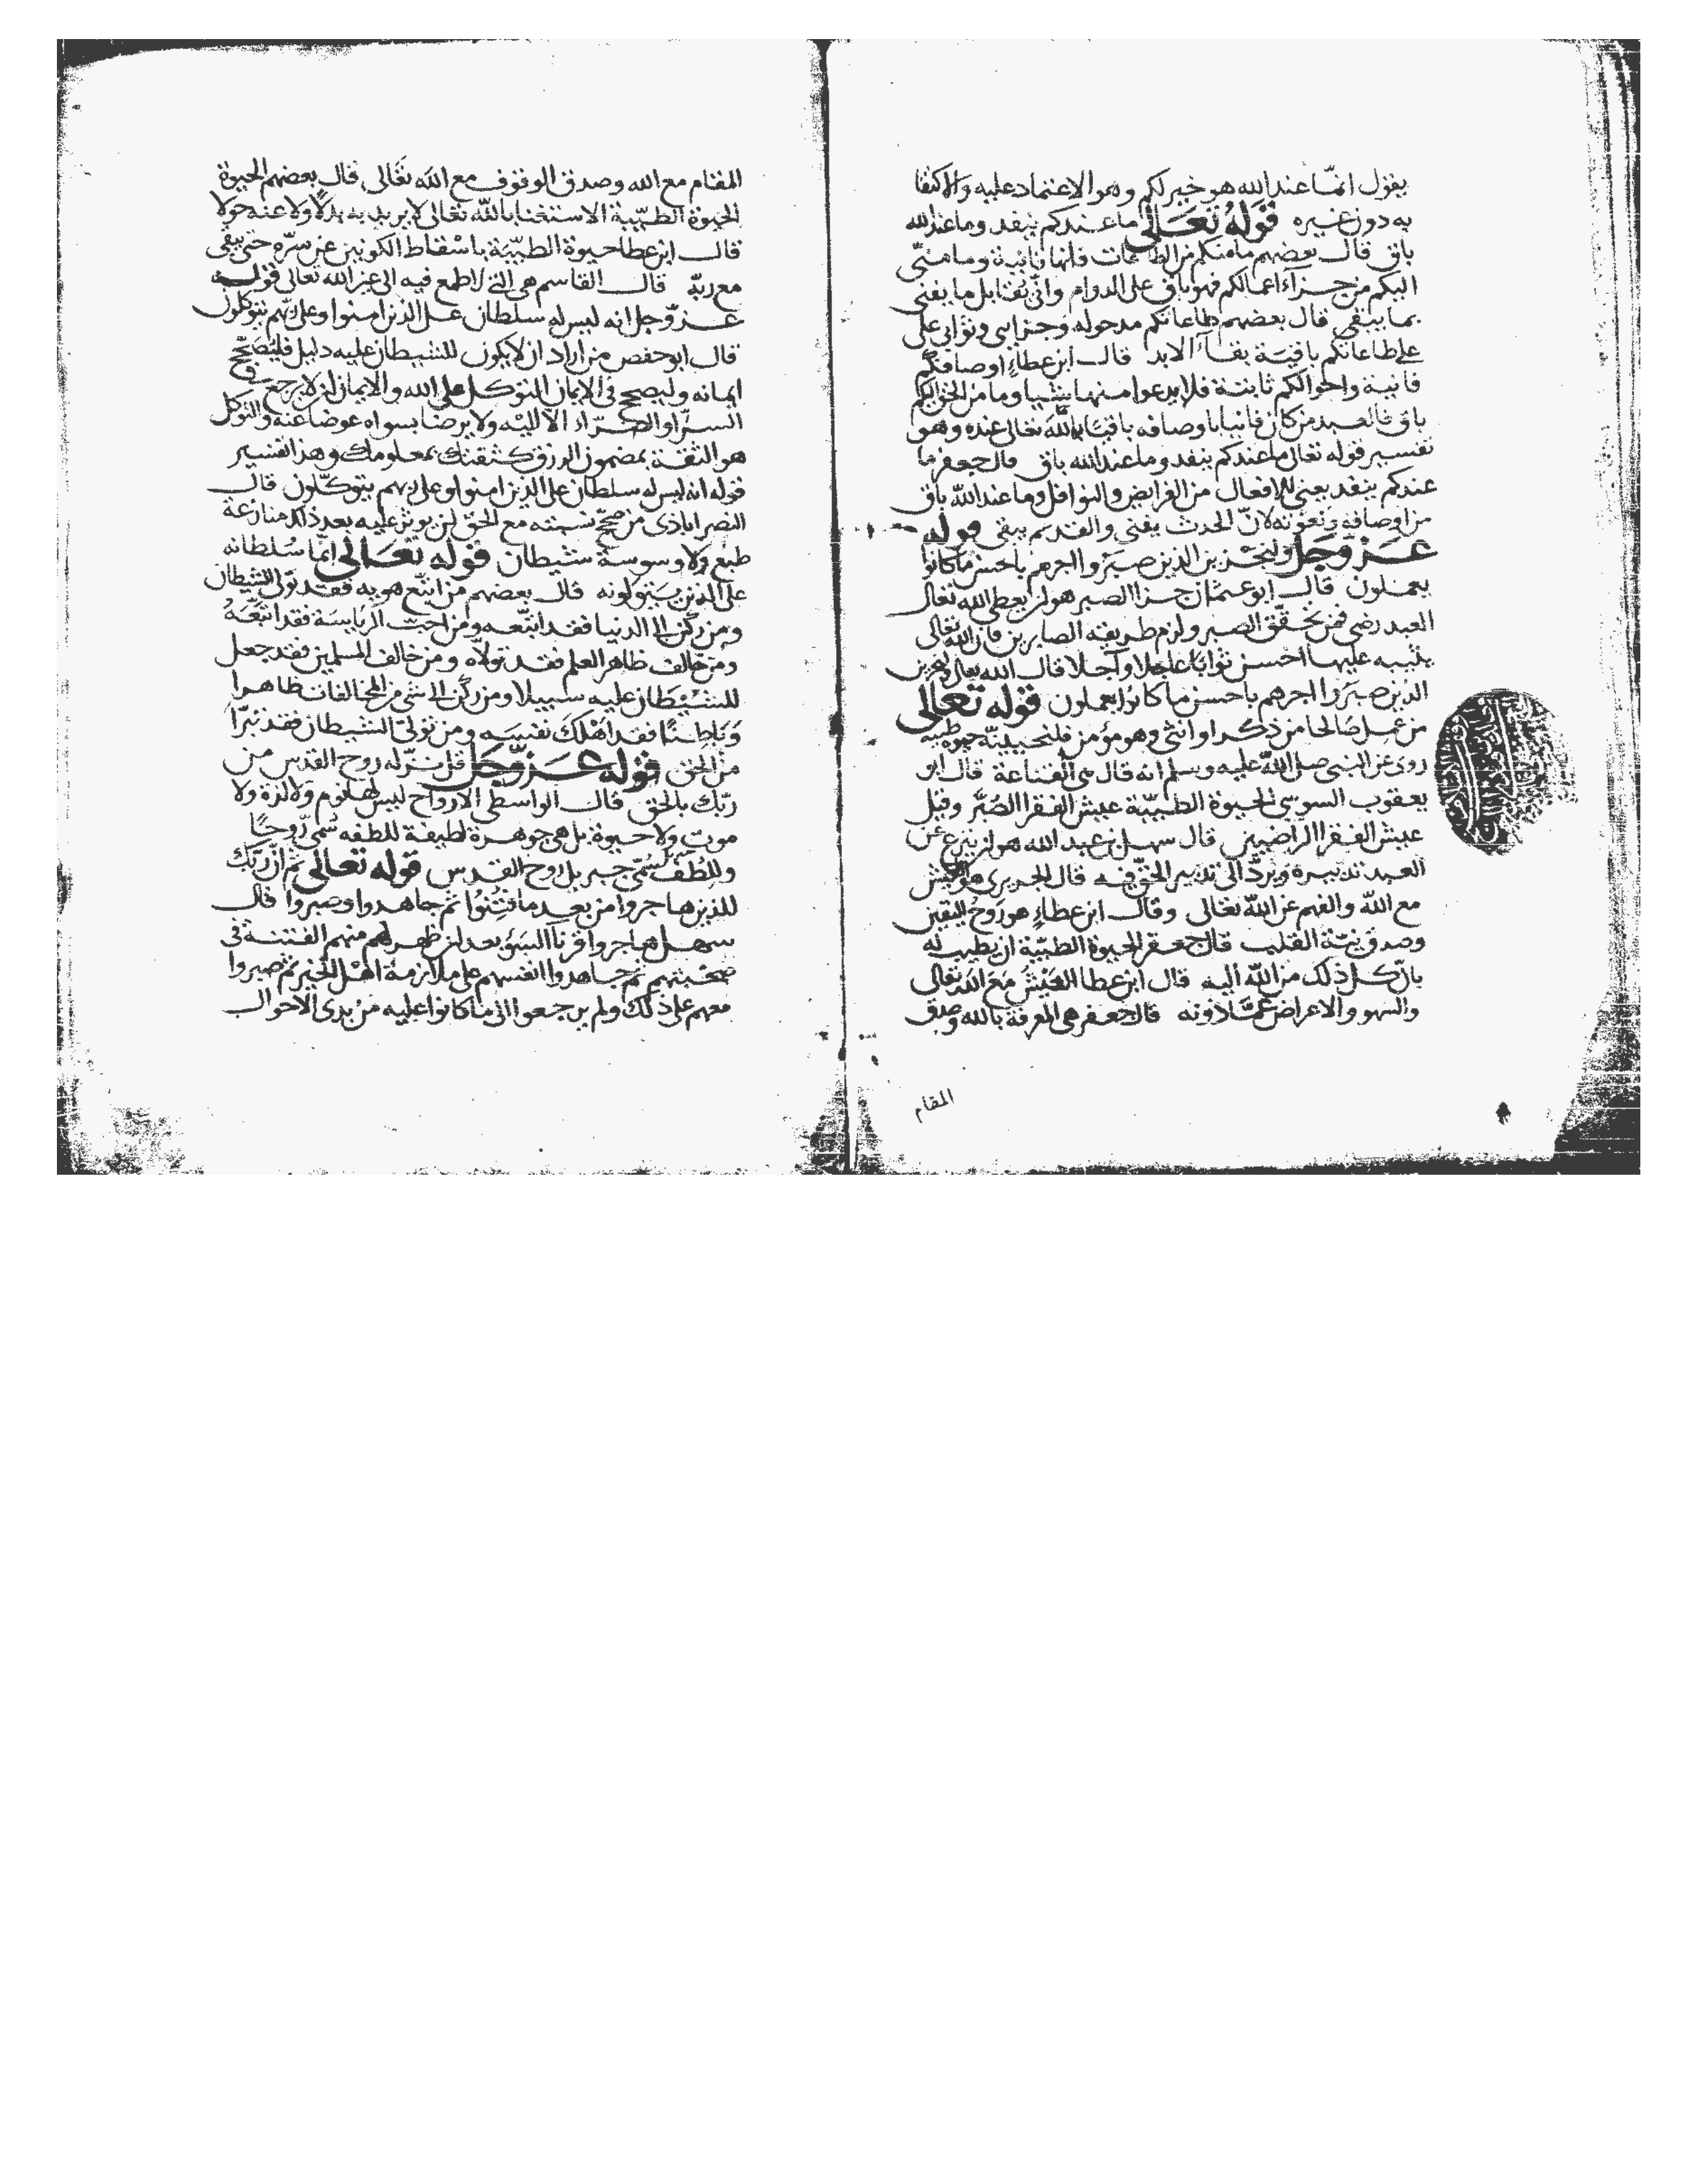 يقول انما عند الله هو خير لكم وهو الاعتماد عليه والاكتفا
به دون غيره قوله تعالى ما عندكم ينفد وما عند الله
باق قال بعضهم ما منكم من الطاعات فانها فانية وما منى
اليكم من جزآء اعمالكم فهو باق على الدوام وانى يقابل ما يفنى
بما يبقى قال بعضهم طاعاتكم مدخوله وجزايى وثوابى على
على طاعاتكم باقية بقاء الابد قال ابن عطاء اوصافكم
فانية واحوالكم ثابتة فلا يدعوا منها شيا وما من الحق اليكم
باق فالعبد من كان فانيا باوصافه باقيا بالله تعالى عنده وهو
تفسير قوله تعالى ما عندكم ينفد وما عند الله باق قال جعفر ما
عندكم ينفد يعنى الافعال من الفرايض والنوافل وما عند الله باق
من اوصافه ونعوته لان الحدث يفنى والقدم يبقى قوله
عز وجل ولنجزين الذين صبروا اجرهم باحسن ما كانوا
يعملون قال ابو عثمان جزا الصبر هو ان يعطى الله تعالى
العبد رضى فمن تحقق الصبر ولزم طريقه الصابرين فان الله تعالى
يثيبه عليها احسن ثوابا عاجلا وآجلا قال الله تعالى ولنجزين
الذين صبروا اجرهم باحسن ما كانوا يعملون قوله تعالى
من عمل صالحا من ذكر او انثى وهو مؤمن فلنحيينه حيوة طيبة
روى عن النبى صلى الله عليه وسلم انه قال هى القناعة قال ابو
يعقوب السوسى الحيوة الطيبة عيش الفقرا الصبر وقيل
عيش الفقرا الراضين قال سهل بن عبد الله هو ان ينزع عن
العبد تدبيره ويرد الى تدبير الحق فيه قال الجريرى هو العيش
مع الله والفهم عن الله تعالى وقال ابن عطاء هو روح اليقين
وصدق نية القلب قال جعفر الحيوة الطيبة ان يطيب له
بان كل ذلك من الله اليه قال ابن عطا العيش مع الله تعالى
والسهو والاعراض عما دونه قال جعفر هى المعرفة بالله وصدق
المقام
المقام مع الله وصدق الوقوف مع الله تعالى قال بعضهم الحيوة
الحيوة الطيبة الاستغنا بالله تعالى لا يريد به بدلا ولا عنه حولا
قال ابن عطا حيوة الطيبة باسقاط الكونين عن سره حتى يبقى
مع ربه قال القاسم هى التى لا طمع فيه الى غير الله تعالى قوله
عز وجل انه ليس له سلطان على الذين امنوا وعلى ربهم يتوكلون
قال ابو حفص من اراد ان لا يكون للشيطان عليه دليل فليصحح
ايمانه وليصحح فى الايمان التوكل على الله والايمان ان لا يرجع فى
السرا والضراء الا اليه ولا يرضا بسواه عوضا عنه والتوكل
هو الثقة بمضمون الرزق كثقتك بمعلومك وهذا تفسير
قوله انه ليس له سلطان على الذين امنوا وعلى ربهم يتوكلون قال
النصراباذى من صحح نسبته مع الحق لن يوثر عليه بعد ذلك منازعة
طبع ولا وسوسة شيطان قوله تعالى انما سلطانه
على الذين يتولونه قال بعضهم من اتبع هويه فقد تولى الشيطان
ومن ركن الى الدنيا فقد اتبعه ومن احب الرياسة فقد اتبعه
ومن خالف ظاهر العلم فقد تولاه ومن خالف المسلمين فقد جعل
للشيطان عليه سبيلا ومن ركن الى شى من المخالفات ظاهرا
وباطنا فقد اهلك نفسه ومن تولى الشيطان فقد تبرا
من الحق قوله عز وجل قل نزله روح القدس من
ربك بالحق قال الواسطى الارواح ليس لها نوم ولا لذة ولا
موت ولا حيوة بل هى جوهرة لطيفة للطفه سمى روحا
وللطف سمى جبريل روح القدس قوله تعالى ثم ان ربك
للذين هاجروا من بعد ما فتنوا ثم جاهدوا وصبروا قال
سهل هاجروا قرنا السؤ بعد ان ظهر لهم منهم الفتنة فى
صحبتهم ثم جاهدوا انفسهم على ملازمة اهل الخير ثم صبروا
معهم على ذلك ولم يرجعوا الى ما كانوا عليه من بدى الاحوال